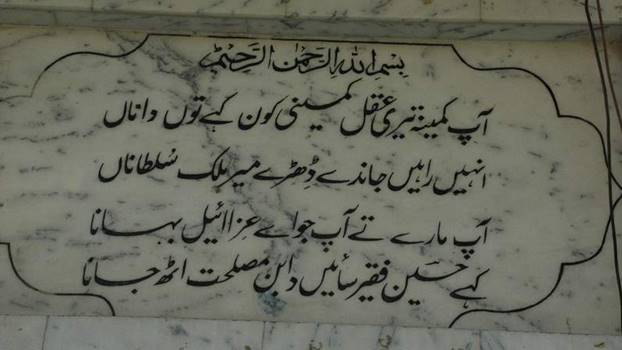 بسم اللہ الرحمٰن الرحیم
آپ کمینہ تیری عقل کمینی کون کہے توں داناں
انہیں راہیں جاندے ڈھٹرے میر ملک سُلطاناں
آپ مارے تے آپ جواے عزرائیل بہانا
کہے حسین فقیر سائیں دا بن مصلحت اٹھ جانا